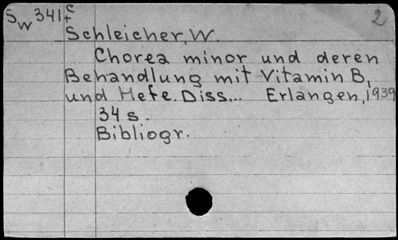 Sw 341 c + 2
Schleicher, W.
Chorea minor und deren
Behandlung mit Vitamin B,
und Hefe. Diss... Erlangen, 1939
34 s.
Bibliogr.